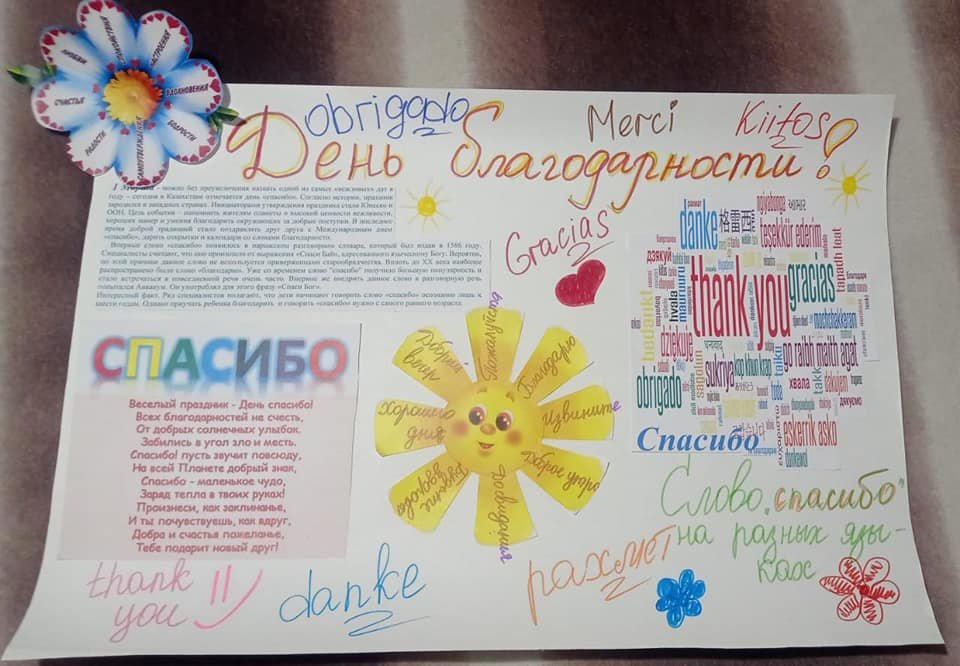 ЛЮБВИ
НАСТРОЕНИЯ
ВДОХНОВЕНИЯ
БОДРОСТИ
САМОУТВЕРЖДЕНИЯ
РАДОСТИ
СЧАСТЬЯ
obrigado
Merci
Kiitos
День благодарности!
1 Марта - можно без преувеличения назвать одной из самых «вежливых» дат в
году – сегодня в Казахстане отмечается день «спасибо». Согласно истории, праздник
зародился в западных странах. Инициаторами утверждения праздника стали Юнеско и
ООН. Цель события – напомнить жителям планеты о высокой ценности вежливости,
хороших манер и умения благодарить окружающих за добрые поступки. В последнее
время доброй традицией стало поздравлять друг друга с Международным днем
«спасибо», дарить открытки и календари со словами благодарности.
Впервые слово «спасибо» появилось в парижском разговорном словаре, который был издан в 1586 году.
Специалисты считают, что оно произошло от выражения «Спаси Бай», адресованного языческому Богу. Вероятно,
по всей причине данное слово не используется приверженцами старообрядчества. Вплоть до XX века наиболее
распространено было слово «благодарю». Уже со временем слово "спасибо" получило большую популярность и
стало встречаться в повседневной речи очень часто. Впервые же внедрить данное слово в разговорную речь
попытался Аввакум. Он употреблял для этого фразу «Спаси Бог».
Интересный факт. Ряд специалистов полагают, что дети начинают говорить слово «спасибо» осознанно лишь к
шести годам. Однако приучать ребенка благодарить и говорить «спасибо» нужно с самого раннего возраста.
Gracias
СПАСИБО
Веселый праздник - День спасибо!
Всех благодарностей не счесть,
От добрых солнечных улыбок.
Забились в угол зло и месть.
Спасибо! пусть звучит повсюду,
На всей Планете добрый знак,
Спасибо - маленькое чудо,
Заряд тепла в твоих руках!
Произнеси, как заклинанье,
И ты почувствуешь, как вдруг,
Добра и счастья пожеланье,
Тебе подарит новый друг!
Пожалуйста
Благодарю
Извините
Хорошего
дня
Добрый
danke
格雷西
teşekkür ederim
tapadh leat
дзякуй
hvala
mauruuru
bedankt
dziękuje
thank you
gracias
mochchakkeram
go raibh maith agat
sukriya
kop khun krap
obrigado
sagolun
takk
хвала
dakujem
eskerrik asko
Спасибо
Слово „спасибо"
на разных язы-
ках
thank
you
danke
рахмет